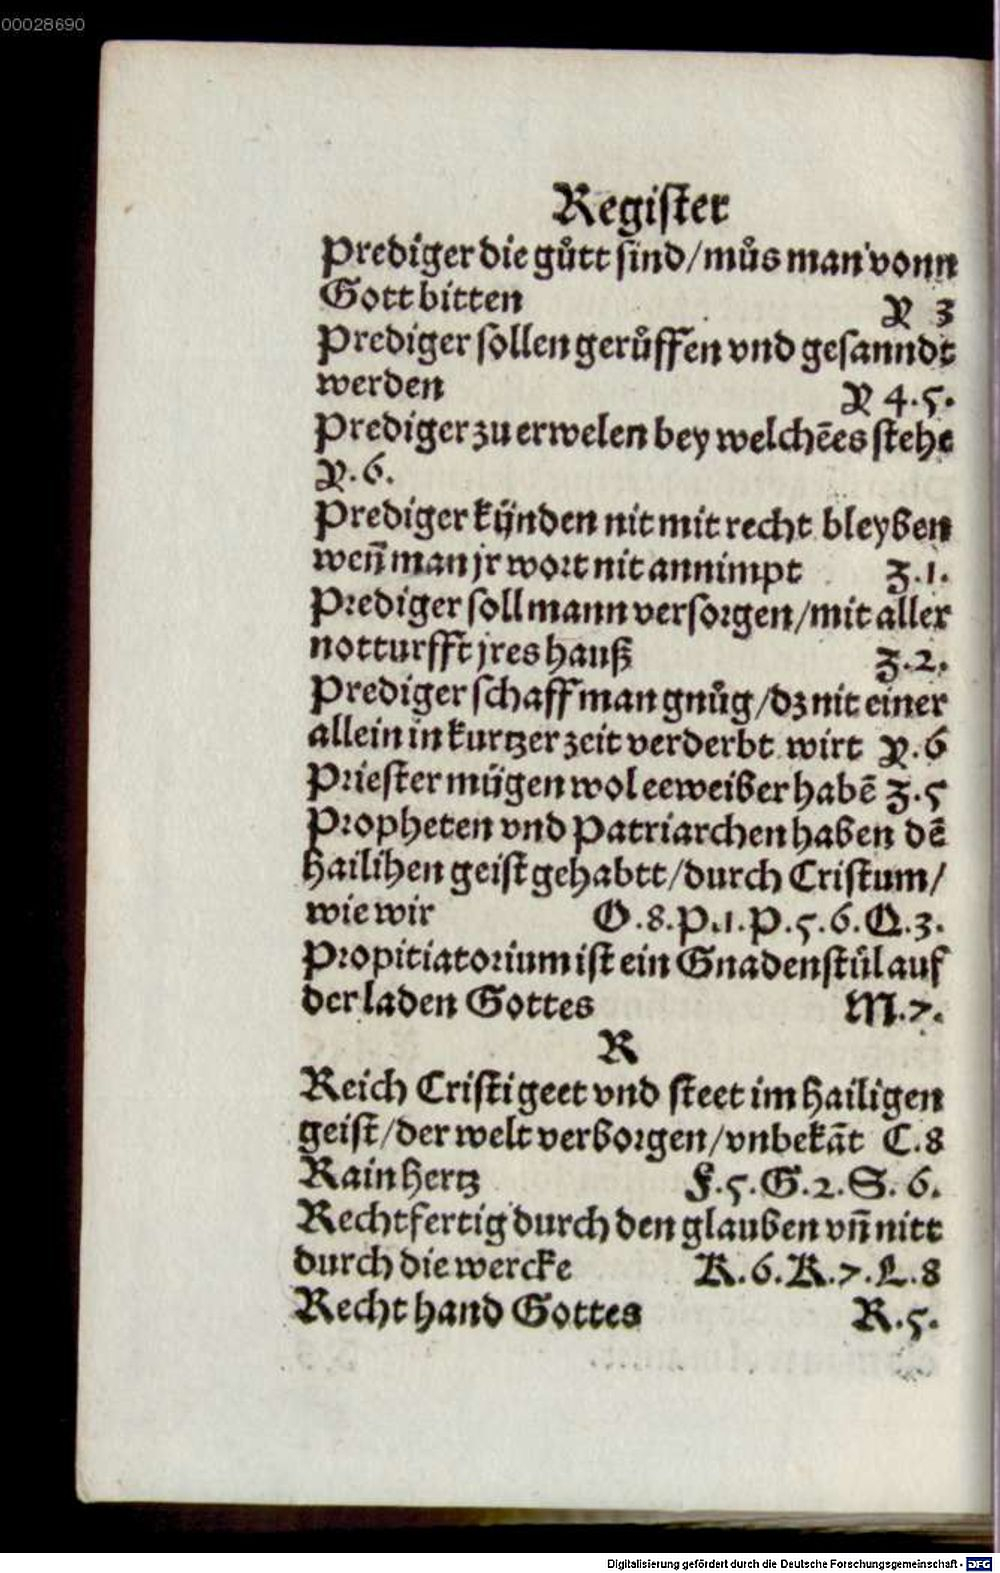 00028690
Register
Prediger die gůtt sind/můs man vonn
Gott bitten Y 3
Prediger sollen gerůffen vnd gesanndt
werden Y 4.5.
Prediger zu erwelen bey welchēes stehe
Y.6.
Prediger kÿnden nit mit recht bleyben
wen̄ man jr wort nit annimpt Z.1.
Prediger soll mann versorgen/mit aller
notturfft jres hauß Z.2.
Prediger schaff man gnůg/dz nit einer
allein in kurtzer zeit verderbt wirt Y.6
Priester mügen wol eeweiber habē Z.5
Propheten vnd Patriarchen haben dē
hailihen geist gehabtt/durch Cristum/
wie wir O.8.P.1.P.5.6.Q.3.
Propitiatorium ist ein Gnadenstül auf
der laden Gottes M.7.
R
Reich Cristi geet vnd steet im hailigen
geist/der welt verborgen/vnbekāt C.8
Rain hertz F.5.G.2.S.6.
Rechtfertig durch den glauben vn̄ nitt
durch die wercke K.6.K.7.L.8
Recht hand Gottes R.5.
Digitalisierung gefördert durch die Deutsche Forschungsgemeinschaft - DFG